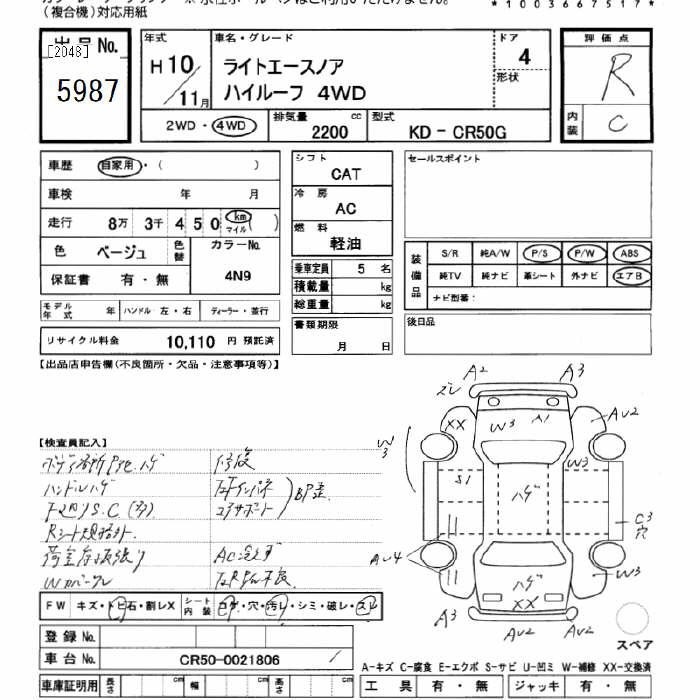 (複合機)対応用紙
*1003667517*
出品No.
[2048]
5987
年式
H10/11月
車名・グレード
ライトエースノア
ハイルーフ 4WD
ドア
4
形状
評価点
R
内装
C
2WD・4WD
排気量
2200 cc
型式
KD-CR50G
車歴 自家用・( )
車検 年 月
走行 8万 3千 4 5 0 km マイル( )
色 ベージュ 色替
カラーNo.
4N9
保証書 有・無
モデル年式 年 ハンドル 左・右 ディーラー・並行
リサイクル料金 10,110 円 預託済
シフト
CAT
冷房
AC
燃料
軽油
乗車定員 5 名
積載量 kg
総重量 kg
書類期限
月 日
セールスポイント
装備品
S/R 純A/W P/S P/W ABS
純TV 純ナビ 革シート 外ナビ エアB
ナビ型番:
後日品
【出品店申告欄(不良箇所・欠品・注意事項等)】
【検査員記入】
ハンドルハゲ
修復
BP歪
FW キズ・トビ石・割レX シート内装 コゲ・穴・汚レ・シミ・破レ・スレ
登録No.
車台No. CR50-0021806
車庫証明用 長さ cm 幅 cm 高さ cm
A2
A3
ズレ
XX
W3
A1
AU2
W3
W3
S1
ハゲ
C3
穴
AU4
W3
ハゲ
XX
A3
AU2
AU2
スペア
A-キズ C-腐食 E-エクボ S-サビ U-凹ミ W-補修 XX-交換済
工具 有・無 ジャッキ 有・無